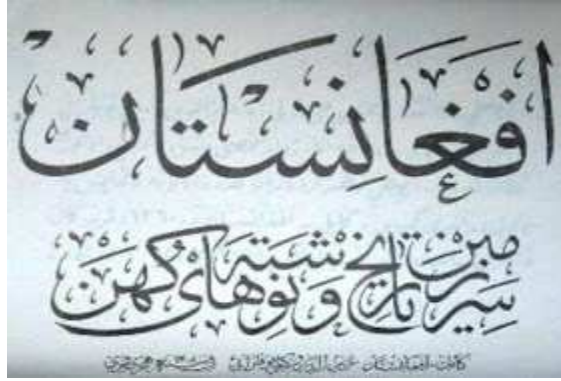 افغانستان
سرزمین تاریخ و نوشته های کهن